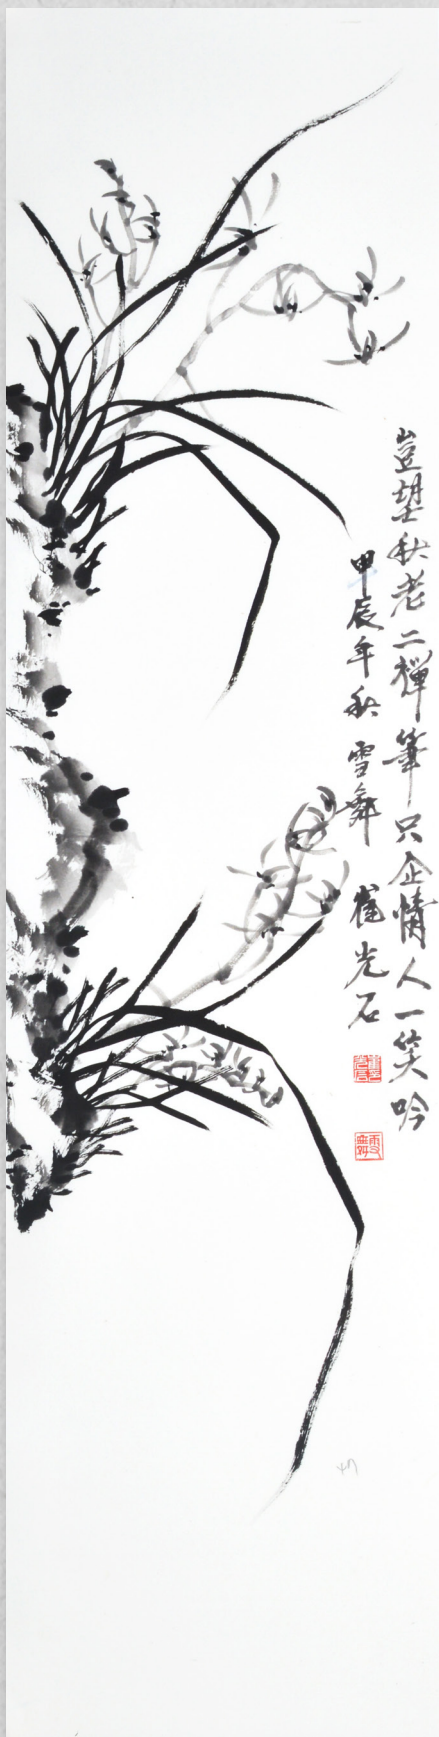 豈望秋老二禪筆只企情人一笑吟
甲辰年秋 雪舞 崔光石